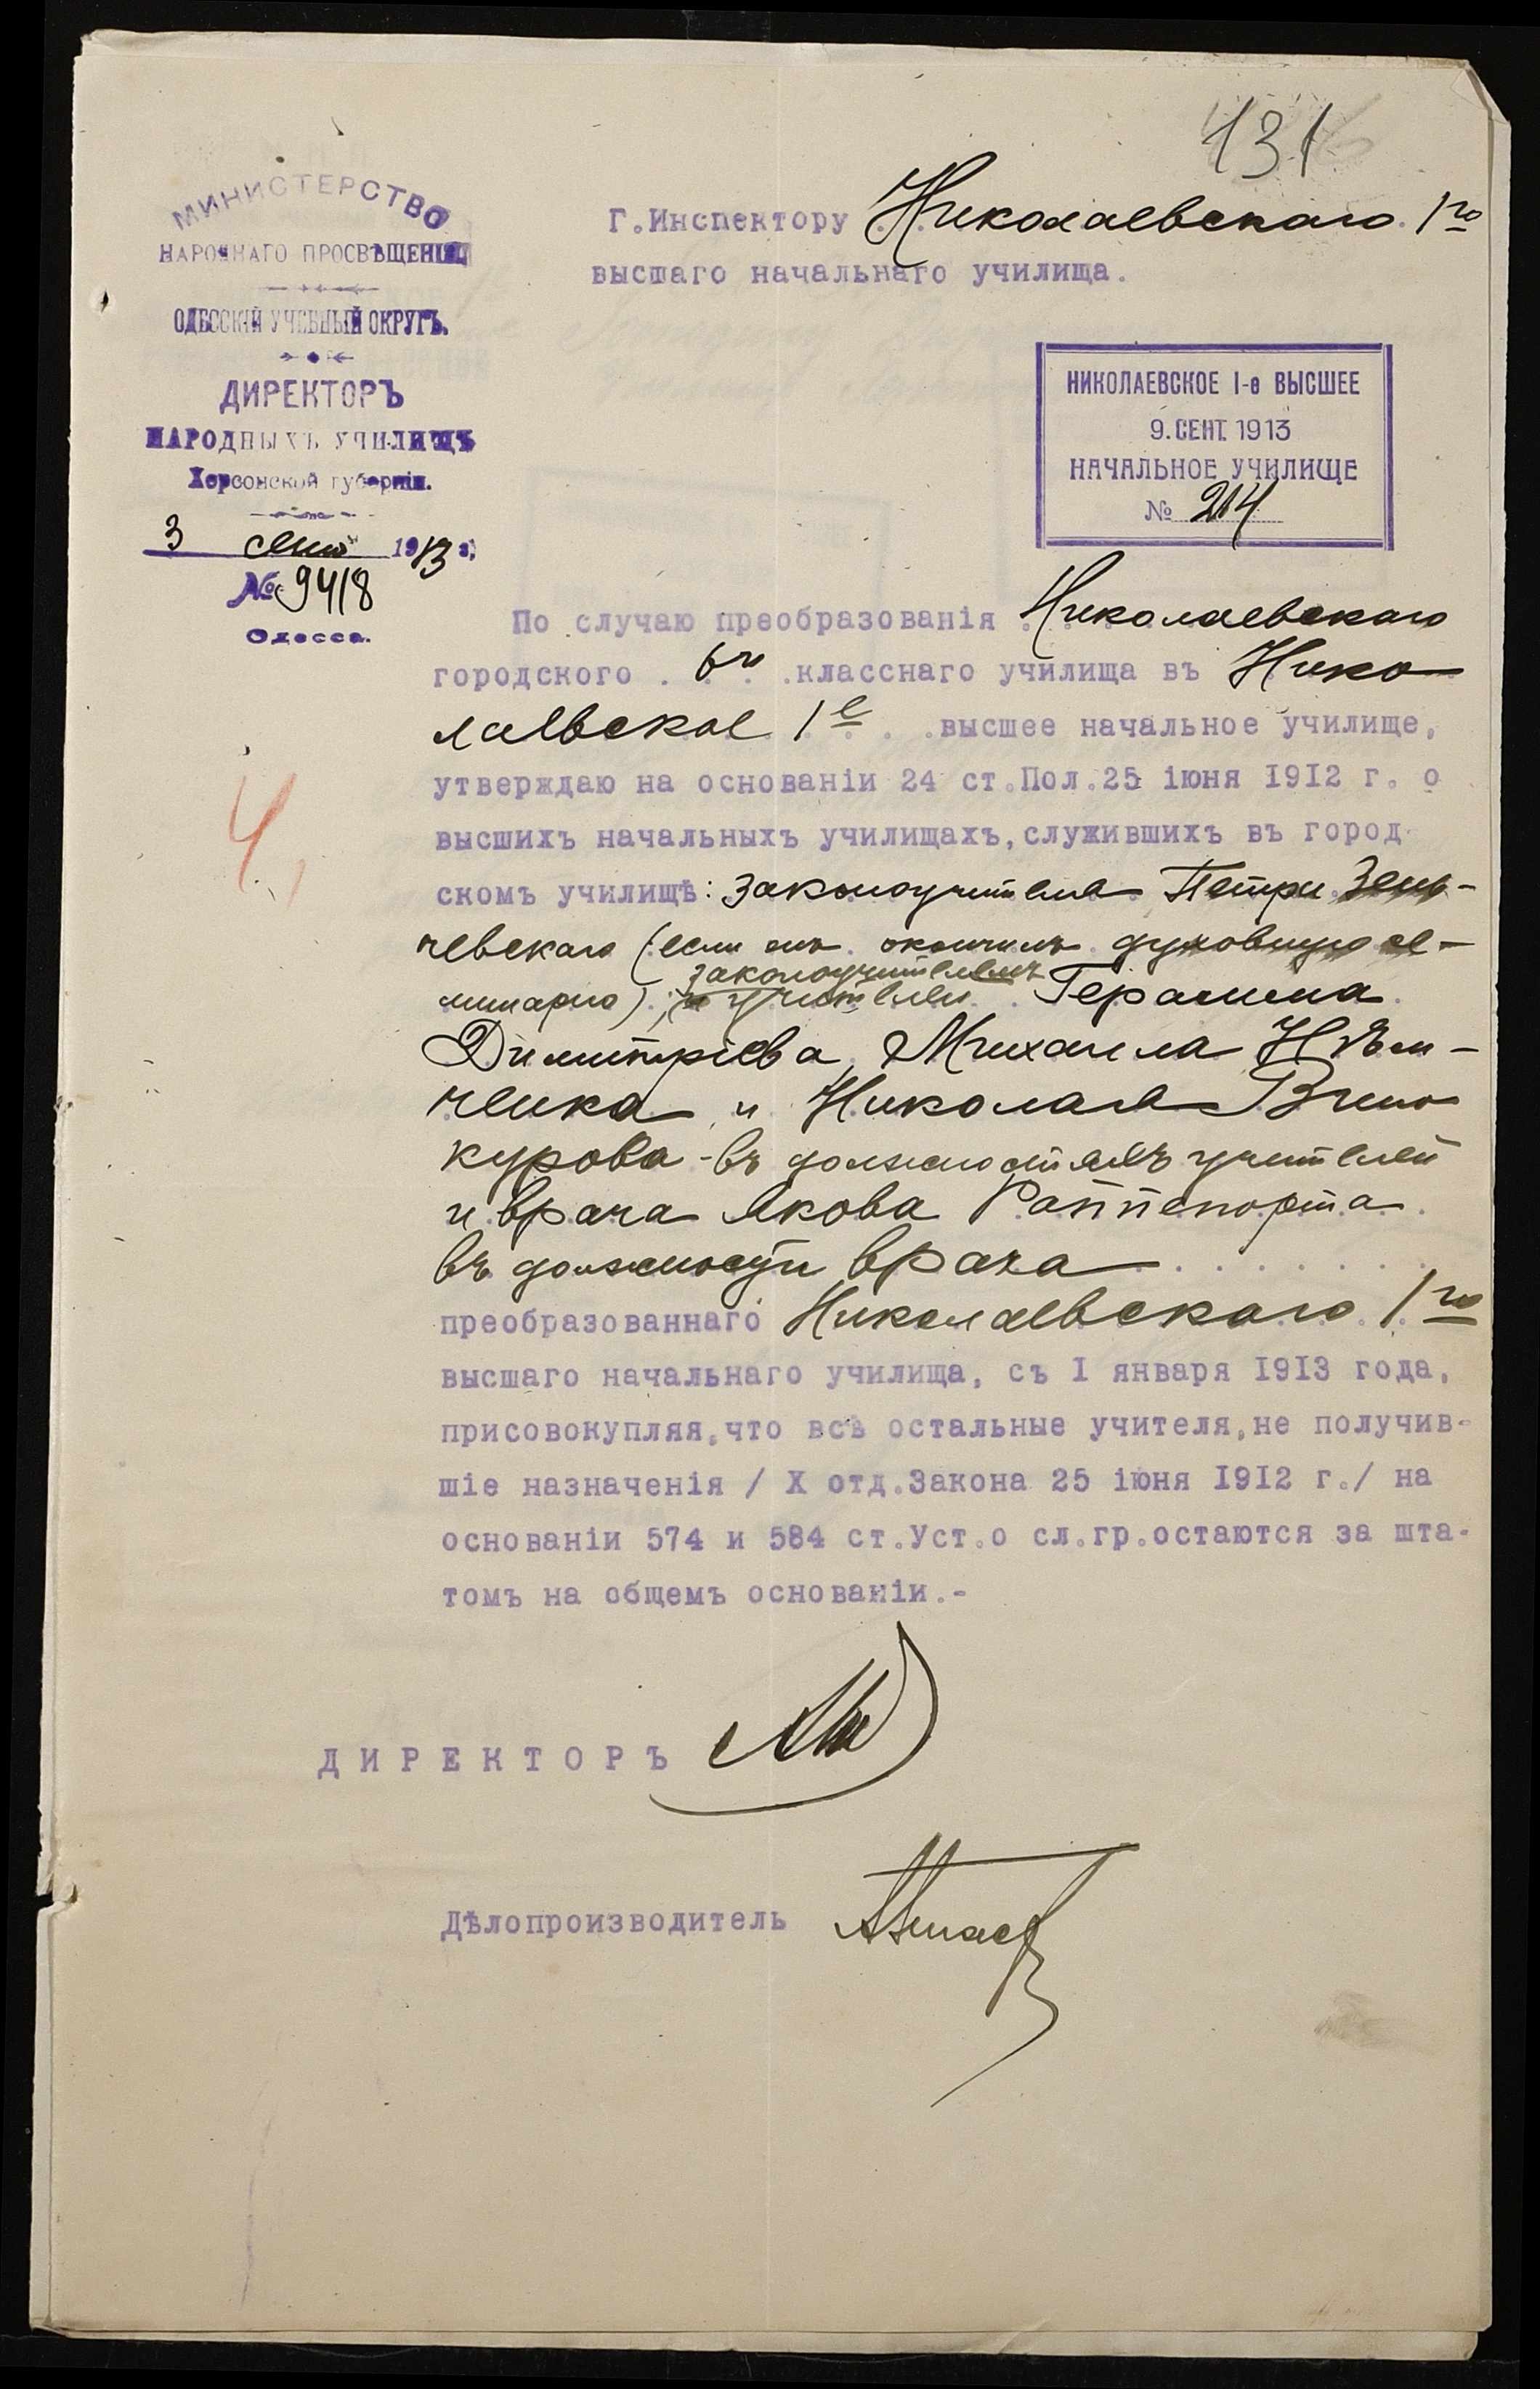 131
МИНИСТЕРСТВО
НАРОДНАГО ПРОСВѢЩЕНІЯ
ОДЕССКІЙ УЧЕБНЫЙ ОКРУГЪ.
ДИРЕКТОРЪ
НАРОДНЫХЪ УЧИЛИЩЪ
Херсонской губерніи.
3 сент 1913 г.
№ 9418
Одесса.
Г.Инспектору Николаевскаго 1го
высшаго начальнаго училища.
НИКОЛАЕВСКОЕ I-е ВЫСШЕЕ
9.СЕНТ.1913
НАЧАЛЬНОЕ УЧИЛИЩЕ
№ 214
По случаю преобразованія Николаевскаго
городского 6ти класснаго училища въ Нико
лаевское 1е высшее начальное училище,
утверждаю на основаніи 24 ст.Пол.25 іюня 1912 г. о
высшихъ начальныхъ училищахъ,служившихъ въ город-
скомъ училищѣ: законоучителя Петра Зень-
чевскаго (если онъ окончилъ духовную се-
минарію) законоучителемъ
учителей Герасима
Димитріева, Михаила Нѣм-
ченка и Николая Вино
курова - въ должностяхъ учителей
и врача Якова Раппопорта
въ должности врача
преобразованнаго Николаевскаго 1го
высшаго начальнаго училища, съ I января 1913 года,
присовокупляя,что всѣ остальные учителя,не получив-
шіе назначенія / X отд.Закона 25 іюня 1912 г./ на
основаніи 574 и 584 ст.Уст.о сл.гр.остаются за шта-
томъ на общемъ основаніи.-
4,
ДИРЕКТОРЪ
Дѣлопроизводитель